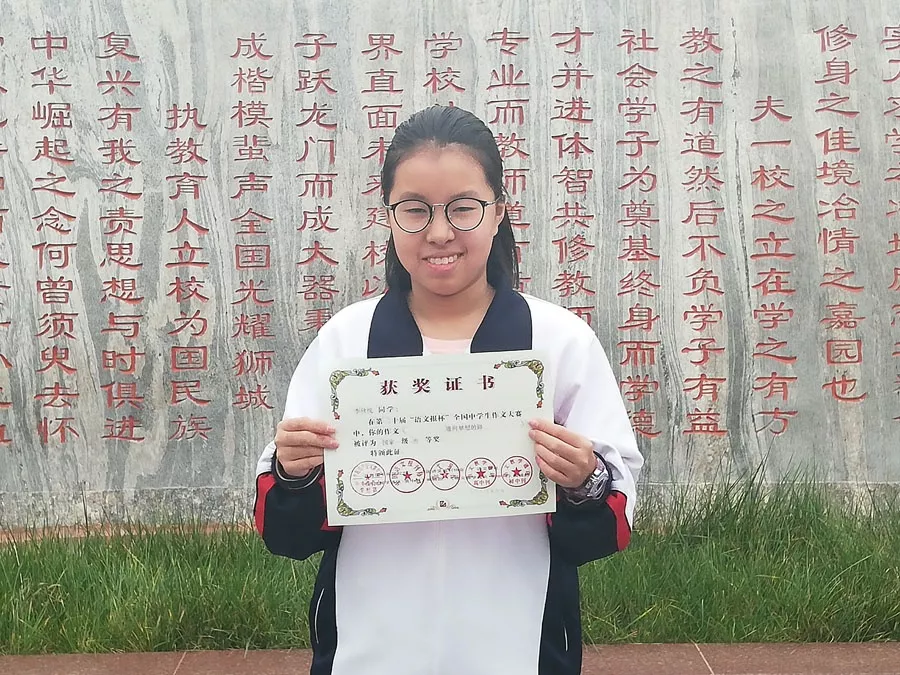 修身之佳境冶情之嘉园也
夫一校之立在学之有方
教之有道然后不负学子有益
社会学子为奠基终身而学德
才并进体智共修教
专业而教师道
学校
界直面未来建校以
子跃龙门而成大器秉
成楷模蜚声全国光耀狮城
执教育人立校为国民族
复兴有我之责思想与时俱进
中华崛起之念何曾须臾去怀
获奖证书
同学：
在第二十届“语文报杯”全国中学生作文大赛
中，你的作文 梦想的路
被评为 国家 级 等奖
特颁此证